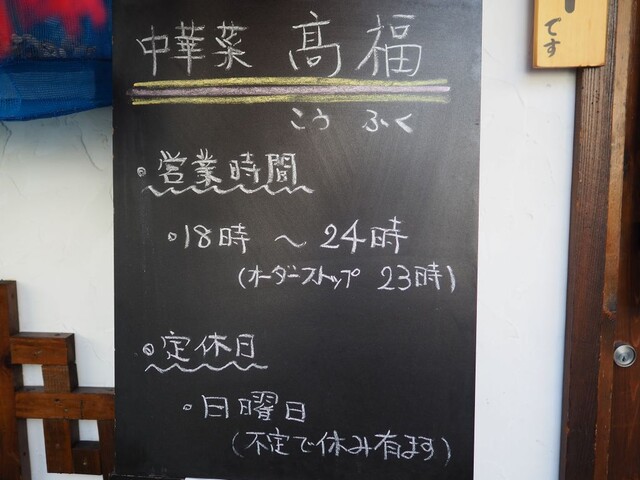 中華菜 高福
こう ふく
営業時間
18時 ～ 24時
(オーダーストップ 23時)
定休日
日曜日
(不定で休み有ます)
です